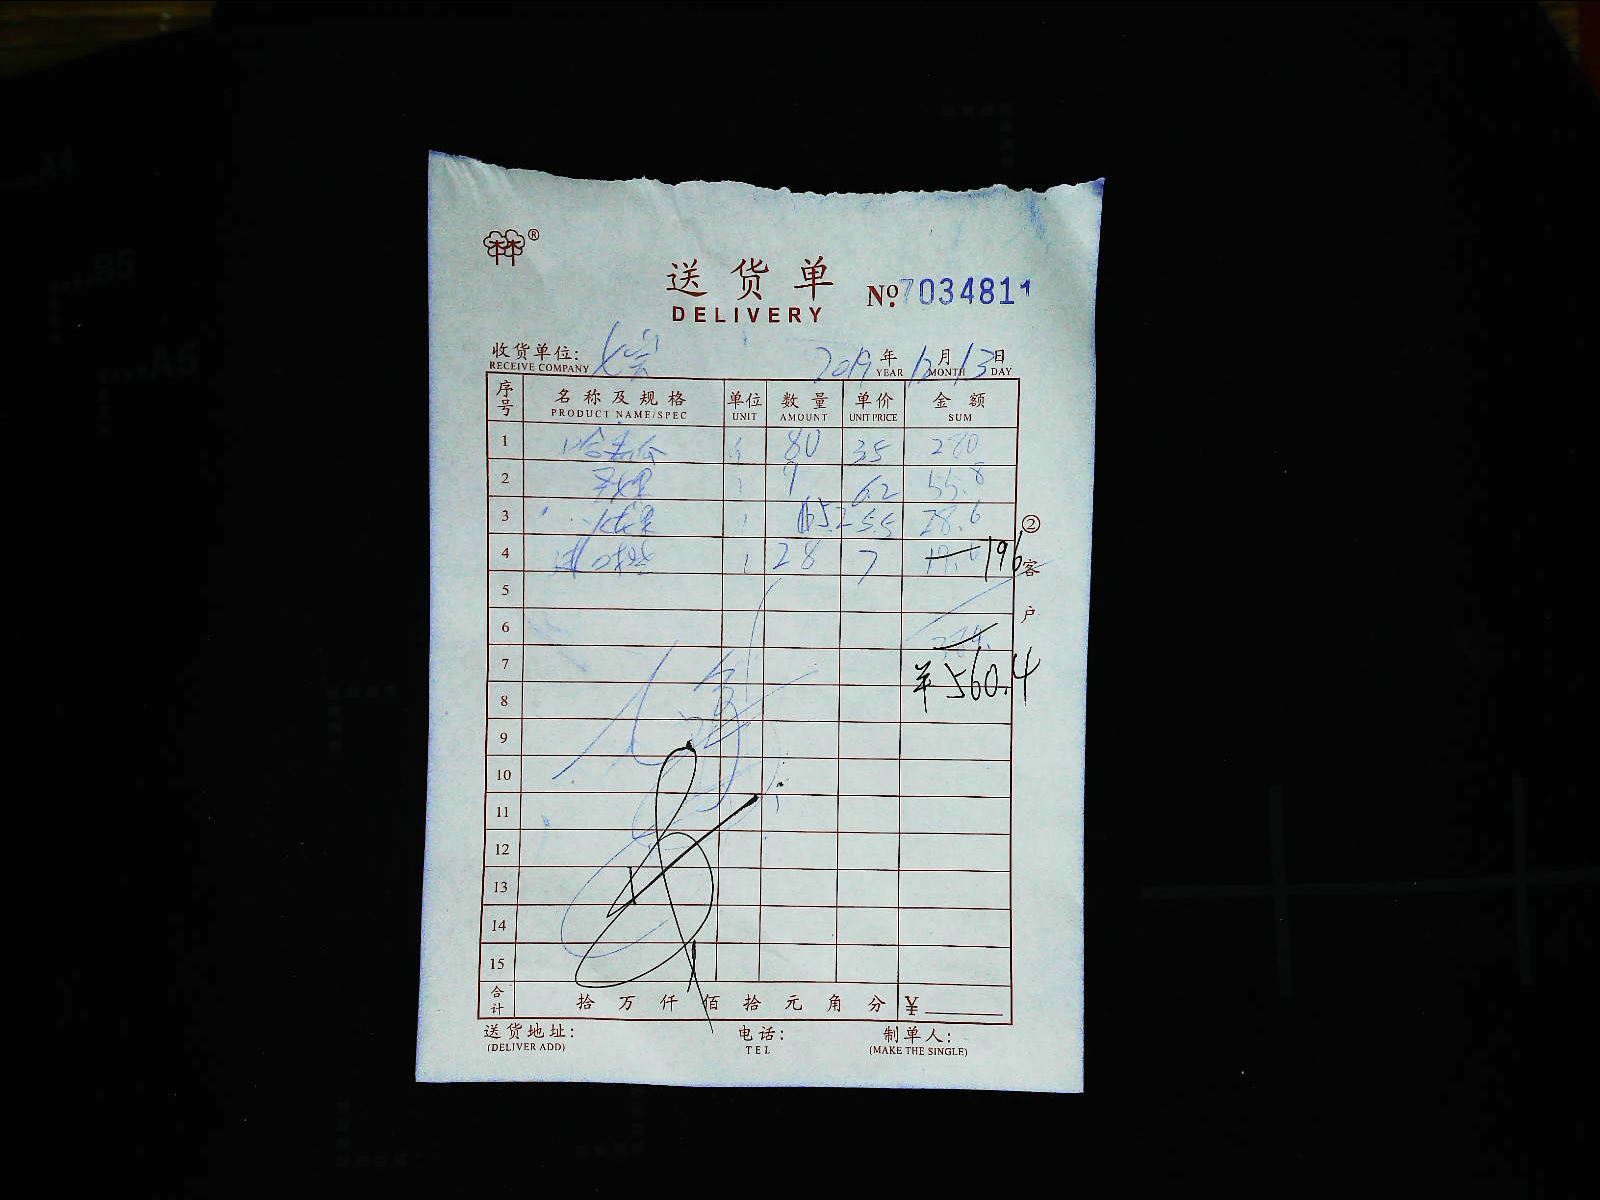 ®
送货单
DELIVERY
No. 7034811
收货单位:
RECEIVE COMPANY
2019 年 12 月 13 日
YEAR MONTH DAY
序号 名称及规格 单位 数量 单价 金额
PRODUCT NAME/SPEC UNIT AMOUNT UNIT PRICE SUM
1 80 35 280
2 9 6.2 55.8
3 火龙果 5.2 5.5 28.6
4 28 7 196
5
6
7 ¥560.4
8
9
10
11
12
13
14
15
②客户
合计 拾 万 仟 佰 拾 元 角 分 ¥
送货地址: 电话: 制单人:
(DELIVER ADD) TEL (MAKE THE SINGLE)